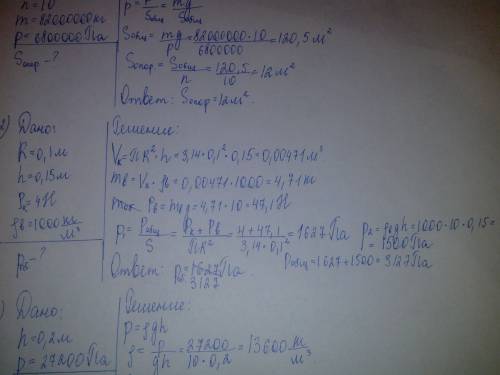 n = 10
m = 82000000 кг
p = 6800000 Па
Sопор - ?
p = P/Sобщ = mg/Sобщ
Sобщ = mg/p = 82000000·10/6800000 = 120,5 м²
Sопор = Sобщ/n = 120,5/10 = 12 м²
Ответ: Sопор = 12 м².
2) Дано:
R = 0,1 м
h = 0,15 м
Pк = 4 Н
ρв = 1000 кг/м³
Решение:
Vк = ПR²·h = 3,14·0,1²·0,15 = 0,00471 м³
mв = Vк·ρв = 0,00471·1000 = 4,71 кг
Pв = mg = 4,71·10 = 47,1 Н
p₁ = Pобщ/S = Pк + Pв/ПR² = 4 + 47,1/3,14·0,1² = 1627 Па
p₂ = ρgh = 1000·10·0,15 =
= 1500 Па
pобщ = 1627 + 1500 = 3127 Па
Ответ: 1627 Па
3127
) Дано:
h = 0,2 м
p = 27200 Па
Решение:
p = ρgh
ρ = p/gh = 27200/10·0,2 = 13600 кг/м³